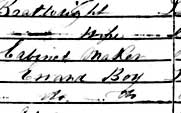 Wife
Cabinet Maker
Errand Boy
do do